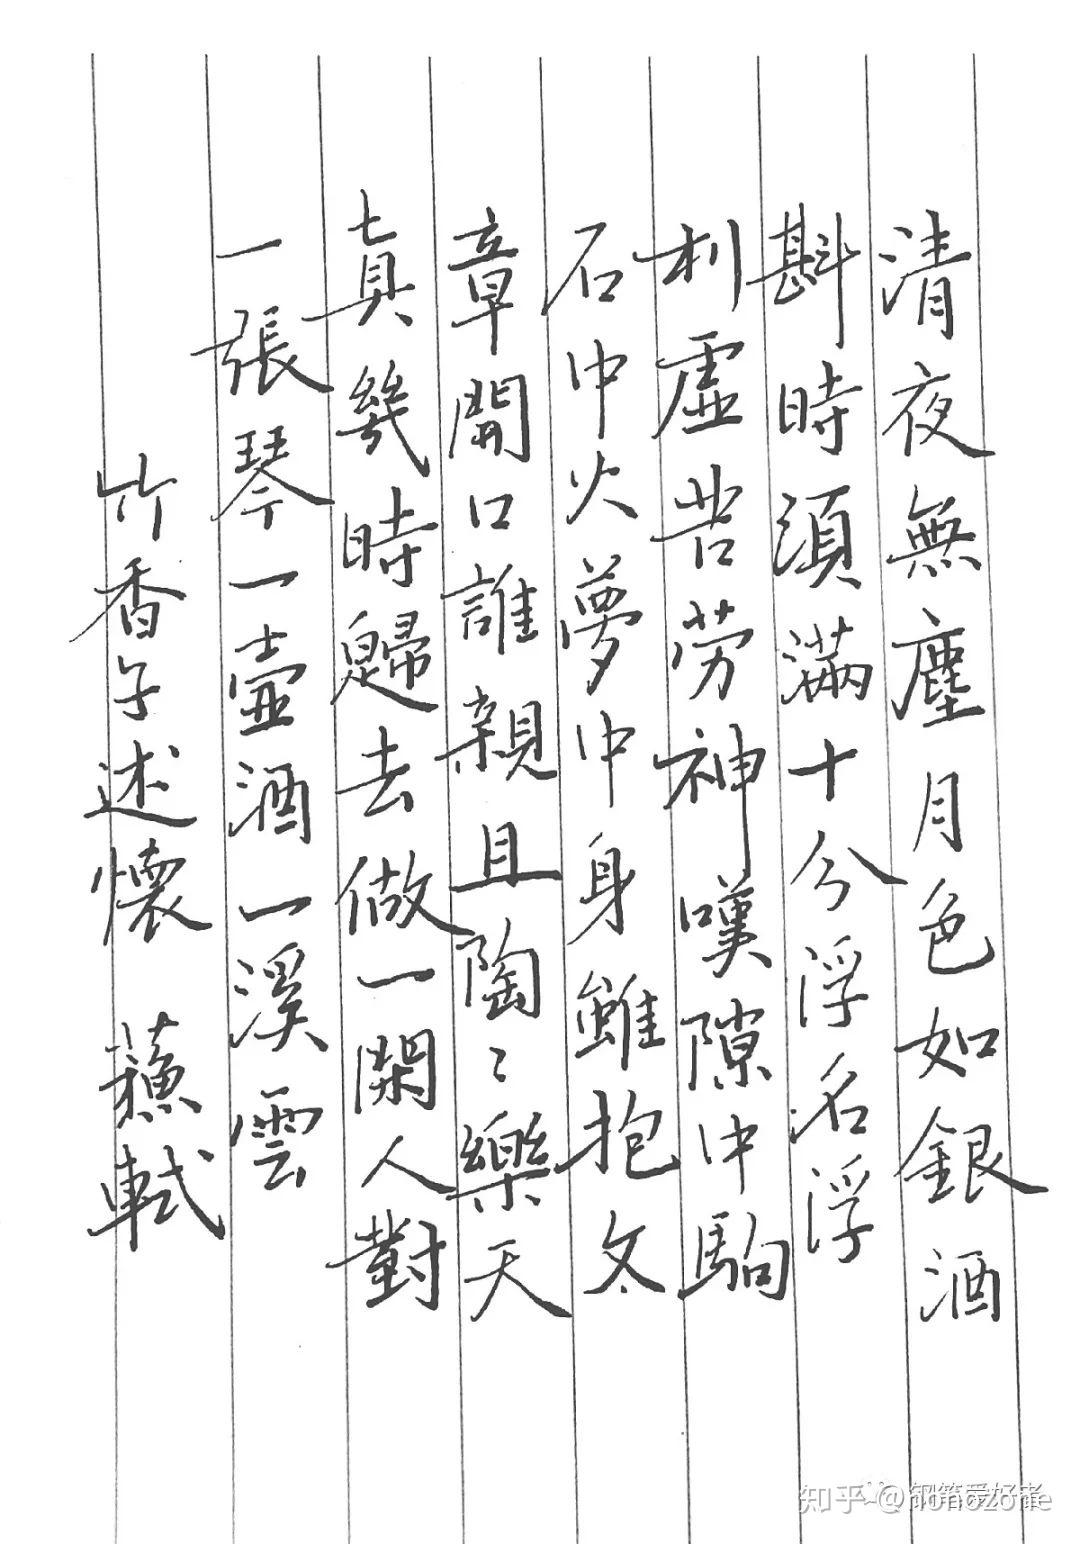 清夜無塵月色如銀酒
斟時須滿十分浮名浮
利虛苦劳神嘆隙中駒
石中火夢中身雖抱文
章開口誰親且陶〻樂天
真幾時歸去做一閑人對
一張琴一壺酒一溪雲
行香子述懷 蘇軾
钢笔爱好者
知乎 @nonozone